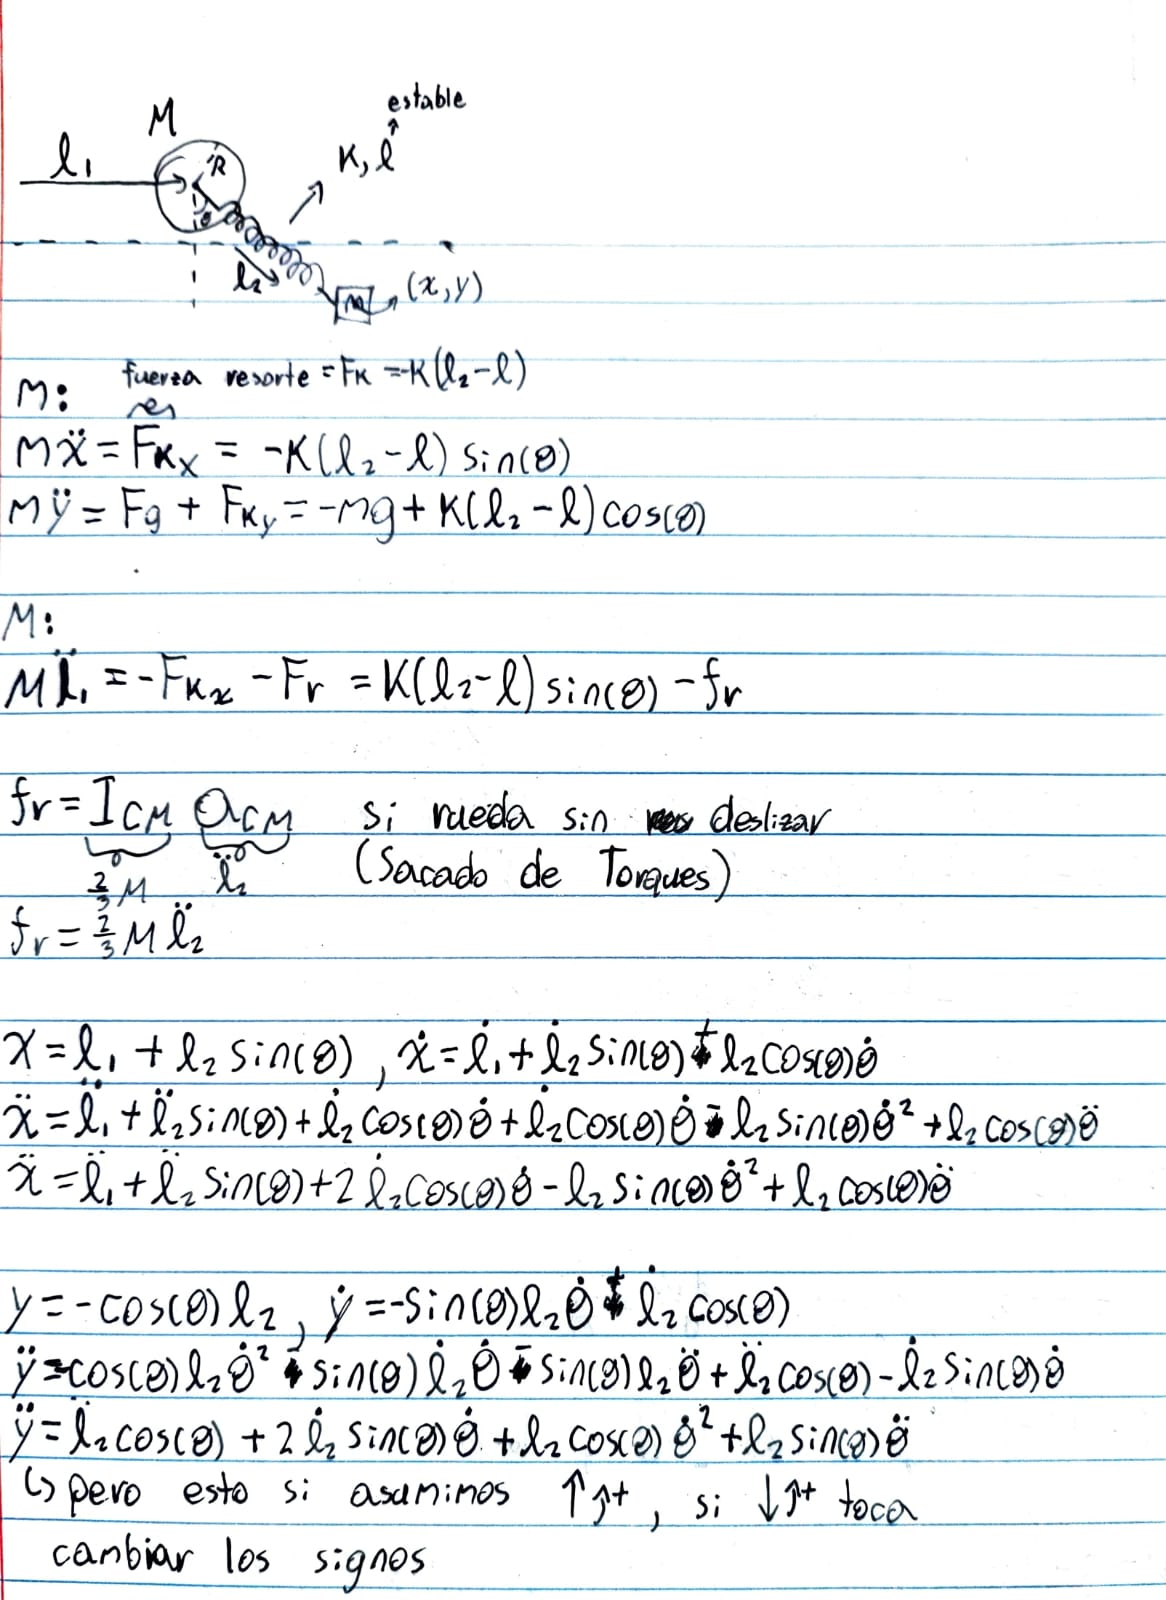 estable
M
l₁
R
K, l
θ
l₂
m
(x, y)
m: fuerza resorte = Fₖ = -K(l₂-l)
mẍ = Fₖₓ = -K(l₂-l) sin(θ)
mÿ = Fg + Fₖᵧ = -mg + K(l₂-l) cos(θ)
M:
M l̈₁ = -Fₖₓ - Fr = K(l₂-l) sin(θ) - fr
fr = I_CM a_CM si rueda sin deslizar
⅔M l̈₂ (Sacado de Torques)
fr = ⅔ M l̈₂
x = l₁ + l₂ sin(θ), ẋ = l̇₁ + l̇₂ sin(θ) + l₂ cos(θ)θ̇
ẍ = l̈₁ + l̈₂ sin(θ) + l̇₂ cos(θ)θ̇ + l̇₂ cos(θ)θ̇ - l₂ sin(θ)θ̇² + l₂ cos(θ)θ̈
ẍ = l̈₁ + l̈₂ sin(θ) + 2 l̇₂ cos(θ)θ̇ - l₂ sin(θ)θ̇² + l₂ cos(θ)θ̈
y = -cos(θ) l₂, ẏ = -sin(θ) l₂ θ̇ + l̇₂ cos(θ)
ÿ = cos(θ) l₂ θ̇² - sin(θ) l̇₂ θ̇ - sin(θ) l₂ θ̈ + l̈₂ cos(θ) - l̇₂ sin(θ)θ̇
ÿ = l̈₂ cos(θ) + 2 l̇₂ sin(θ)θ̇ + l₂ cos(θ)θ̇² + l₂ sin(θ)θ̈
↳ pero esto si asumimos ↑y+, si ↓y+ toca
cambiar los signos